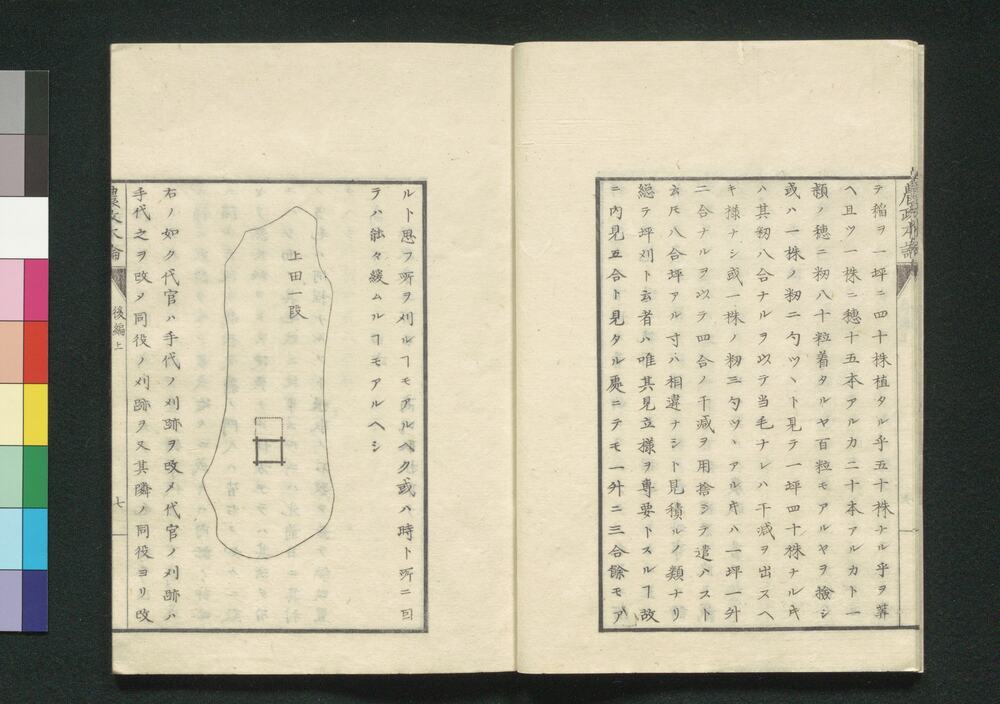 テ稲ヲ一坪ニ四十株植タル乎五十株ナル乎ヲ算
ヘ且ツ一株ニ穂十五本アルカ二十本アルカト一
類ノ穂ニ籾八十粒着タルヤ百粒モアルヤヲ撿シ
或ハ一株ノ籾二勺ツヽト見テ一坪四十株ナル片
ハ其籾八合ナルヲ以テ当毛ナレハ干減ヲ出スヘ
キ様ナシ或一株ノ籾三勺ツヽアル片ハ一坪一升
二合ナルヲ以テ四合ノ干減ヲ用捨シテ遣ハスト
云𪜈八合坪アル寸ハ相違ナシト見積ルノ類ナリ
総テ坪刈ト云者ハ唯其見立様ヲ専要トスルヿ故
ニ内見五合ト見タル處ニテモ一升二三合餘モア
ルト思フ所ヲ刈ルヿモアルヘク或ハ時ト所ニ因
テハ能々緩ムルヿモアルヘシ
上田一段
右ノ如ク代官ハ手代ノ刈跡ヲ改メ代官ノ刈跡ハ
手代之ヲ改メ同役ノ刈跡ヲ又其隣ノ同役ヨリ改
農政本論
後編上
七